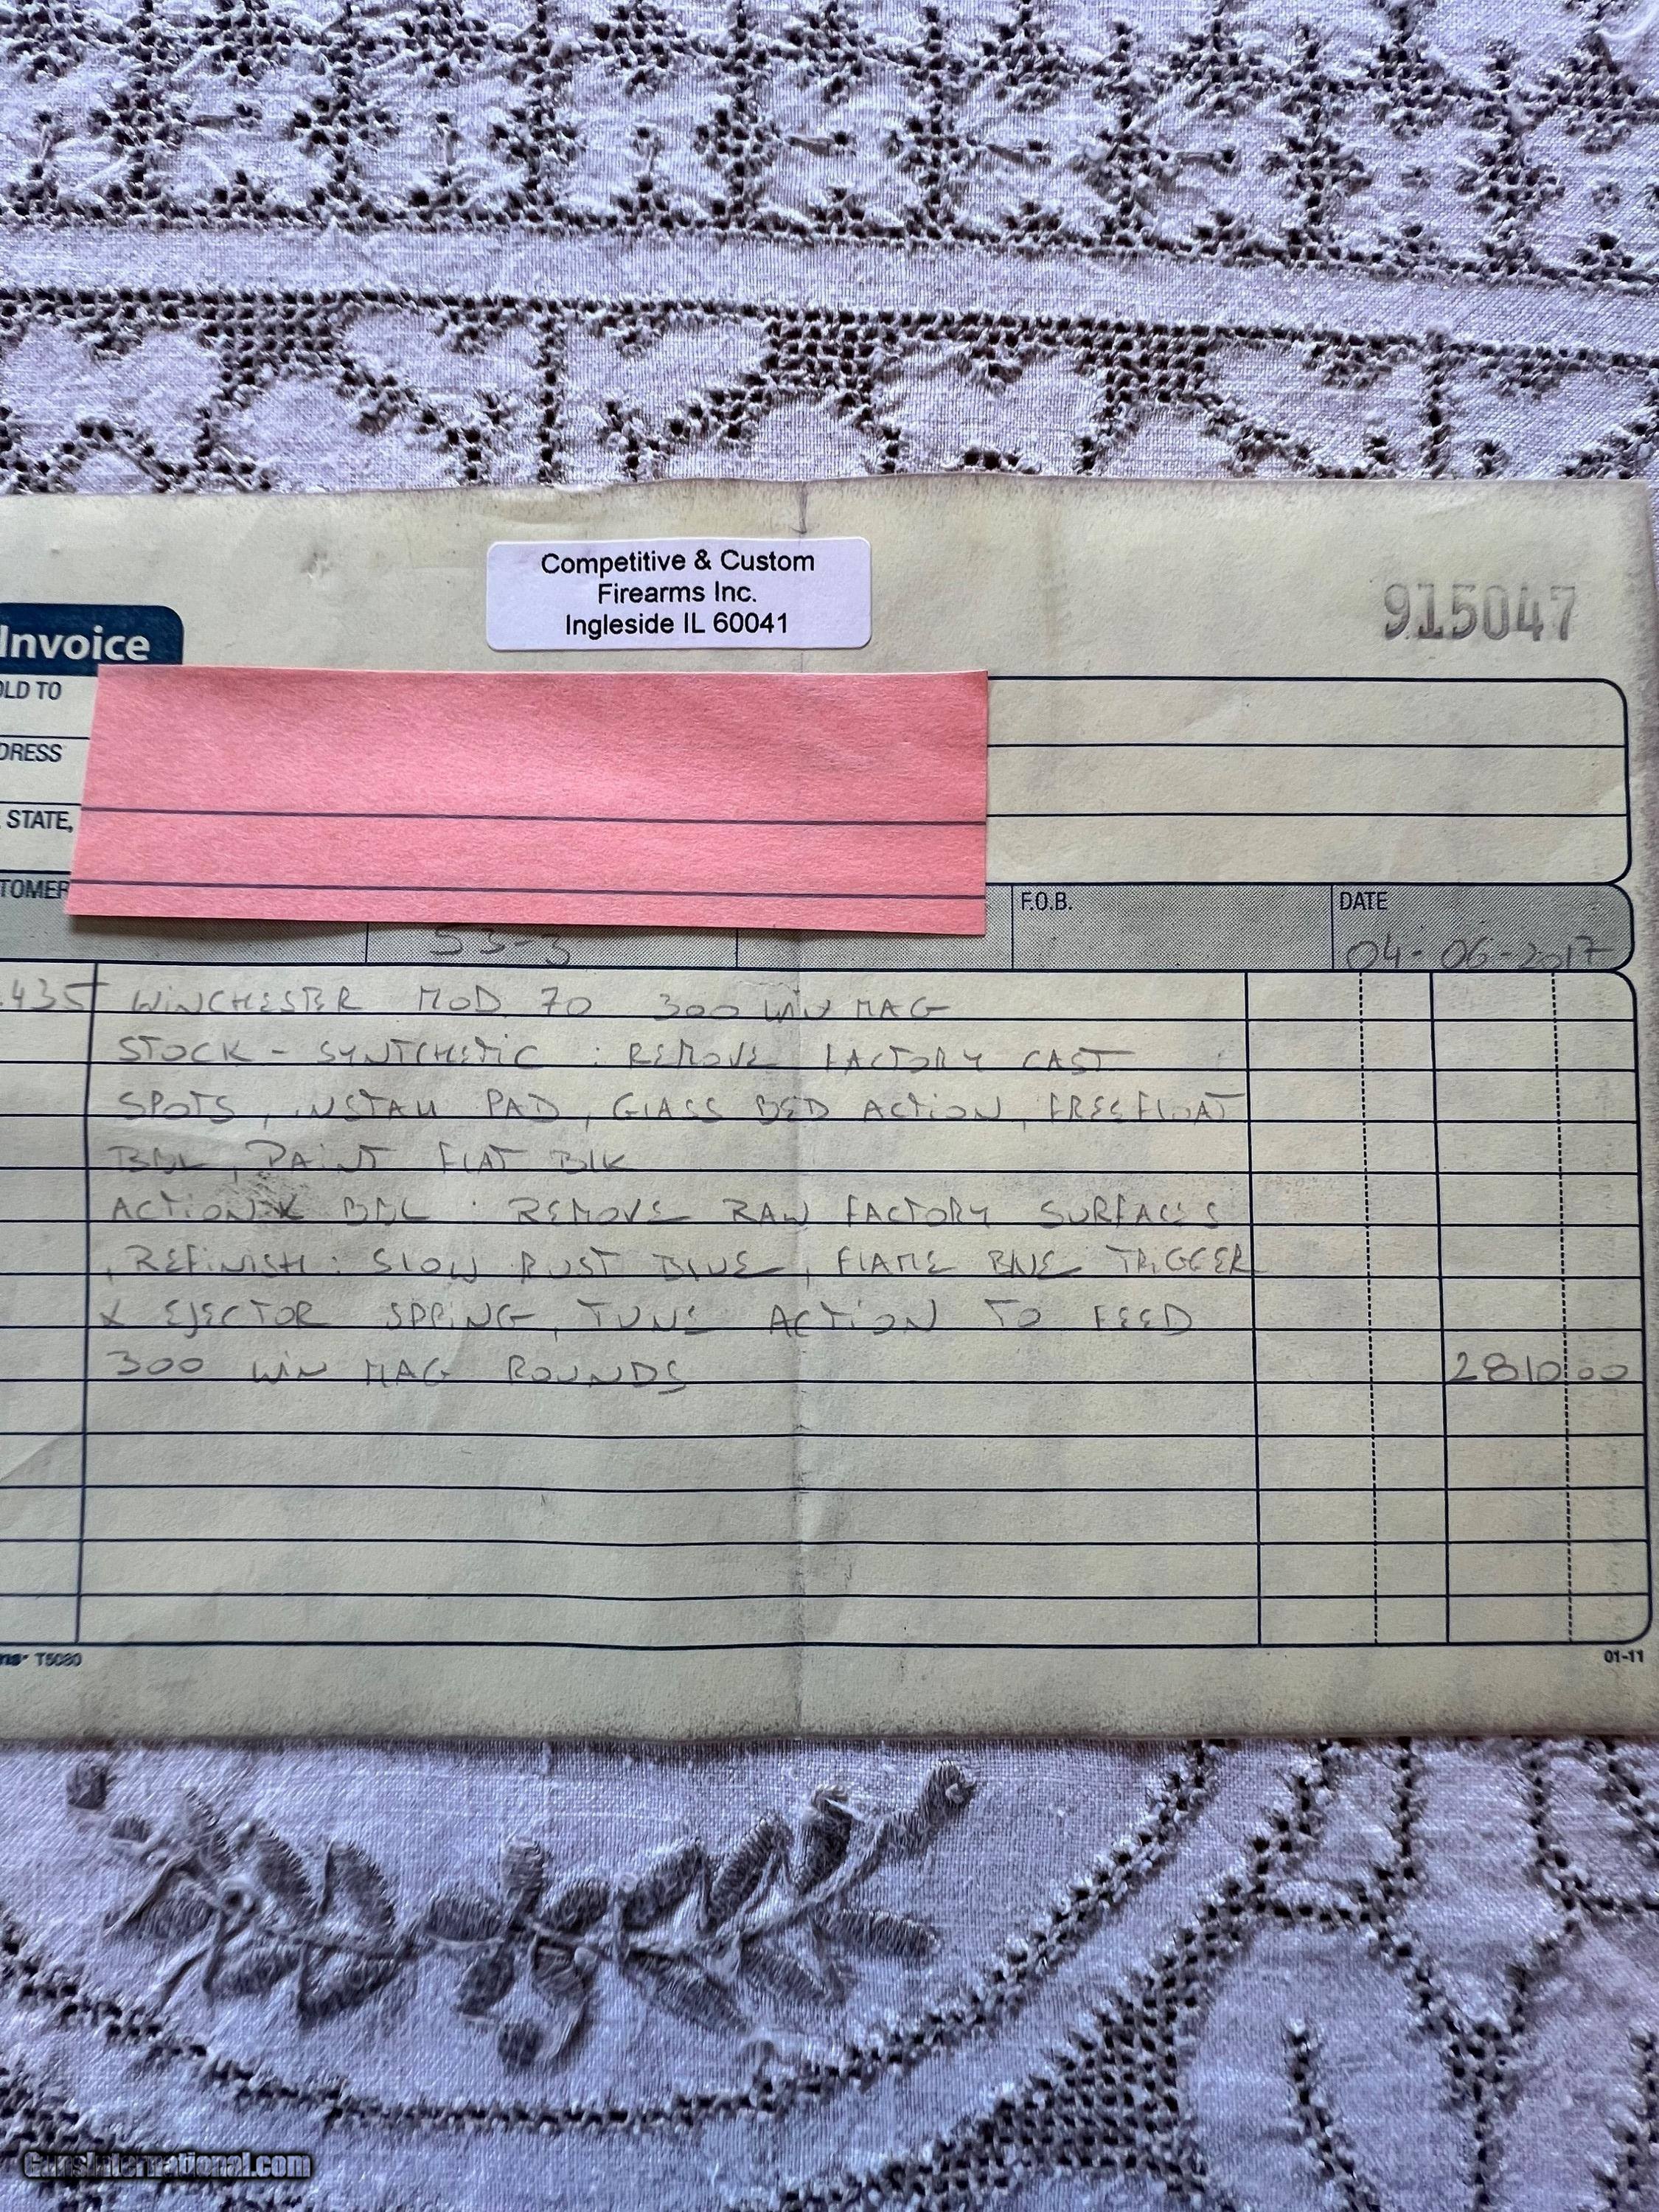 Competitive & Custom
Firearms Inc.
Ingleside IL 60041
915047
Invoice
OLD TO
DRESS
STATE,
TOMER
F.O.B.
DATE
53-3
04-06-2017
.435 WINCHESTER MOD. 70 300 WIN MAG
STOCK - SYNTCHETIC : REMOVE FACTORY CAST
SPOTS, INSTALL PAD, GLASS BED ACTION, FREEFLOAT
BBL, PAINT FLAT BLK
ACTION & BBL : REMOVE RAW FACTORY SURFACES
, REFINISH : SLOW RUST BLUE, FLAME BLUE TRIGGER
& EJECTOR SPRING, TUNE ACTION TO FEED
300 WIN MAG ROUNDS 2810.00
T5080
01-11
GunsInternational.com